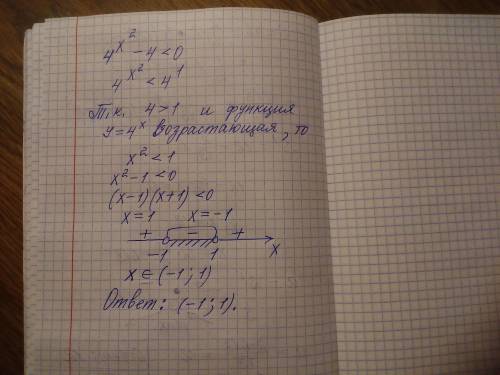 4^{x^2} - 4 < 0
4^{x^2} < 4^1
Т.к. 4 > 1 и функция
y = 4^x возрастающая, то
x^2 < 1
x^2 - 1 < 0
(x-1)(x+1) < 0
x = 1 x = -1
+ - +
-1 1 x
x ∈ (-1; 1)
Ответ: (-1; 1).